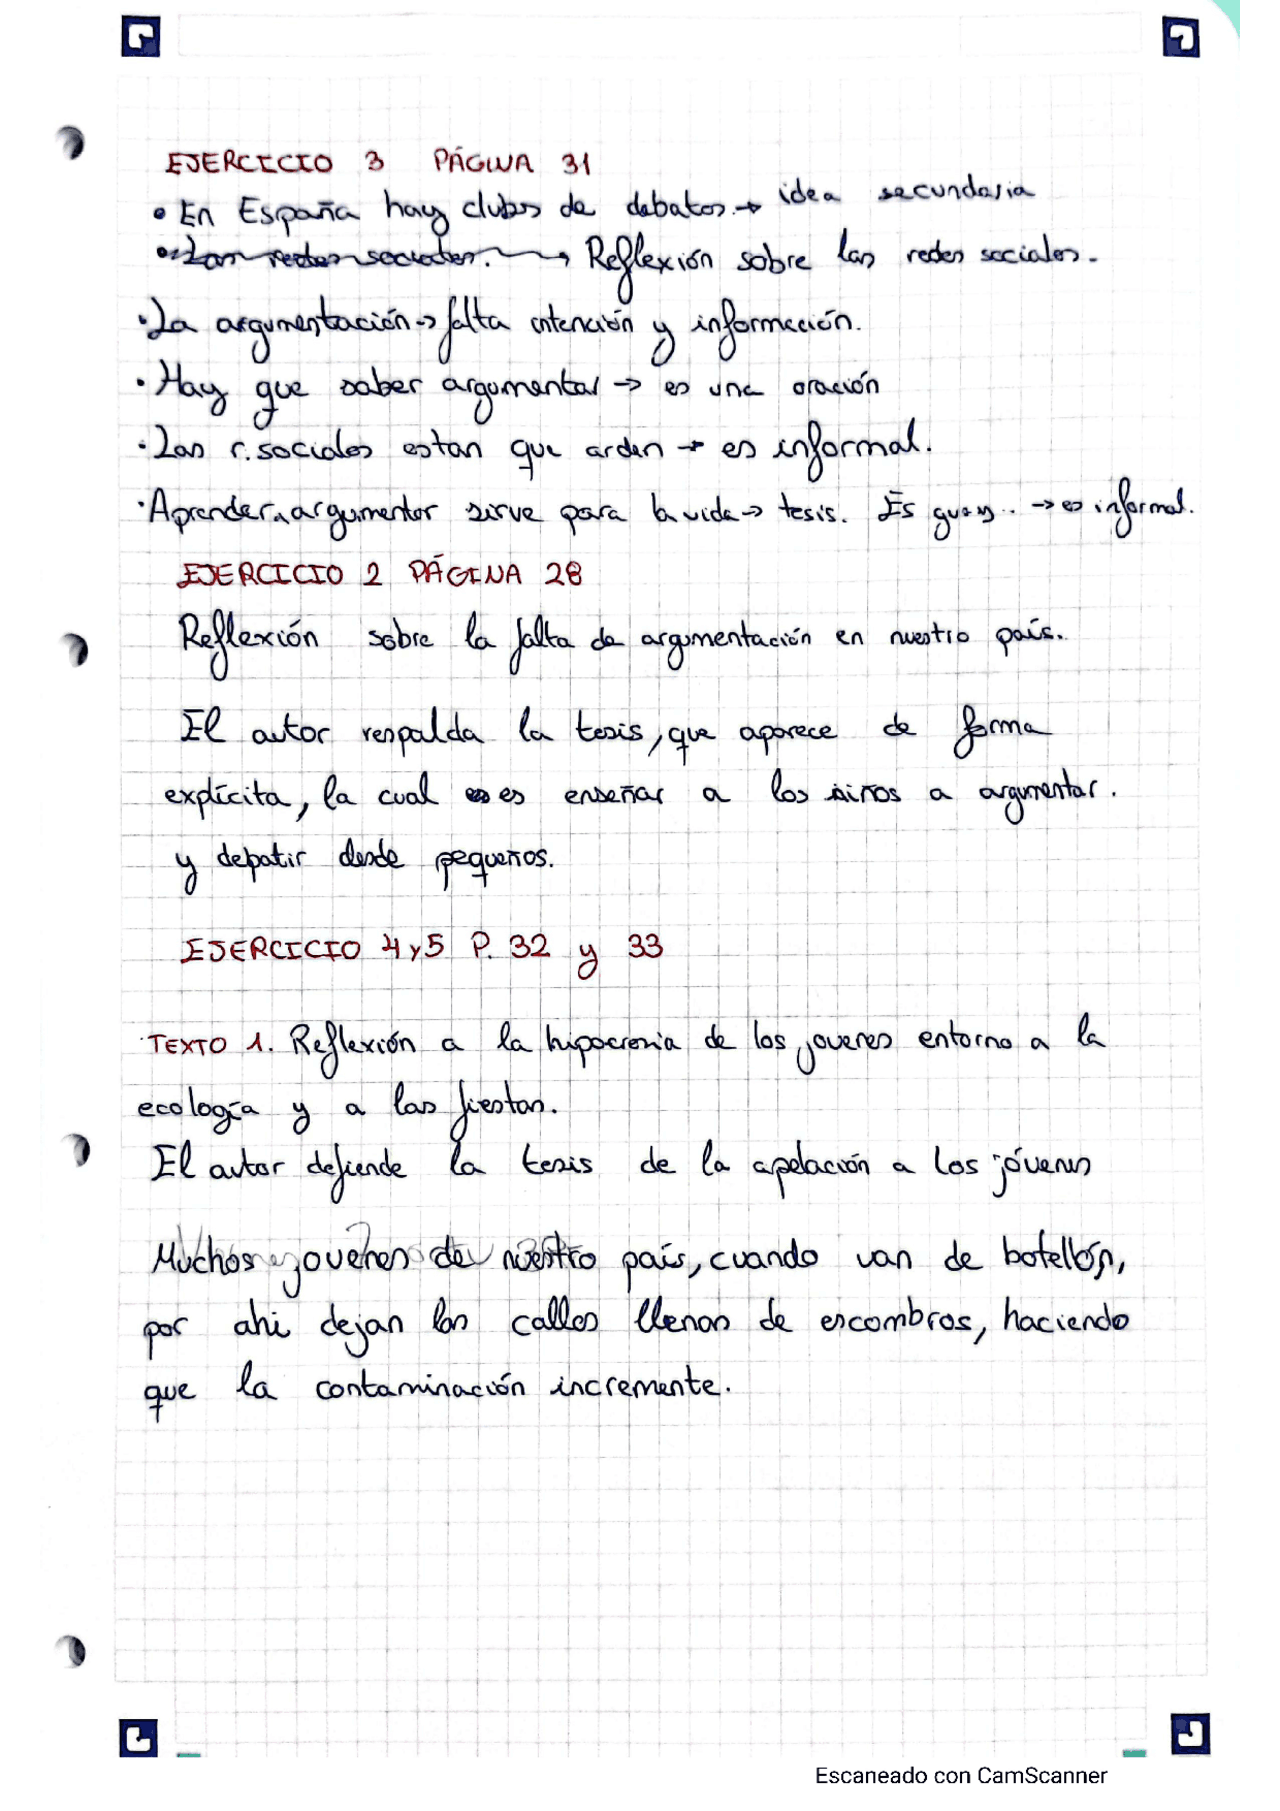 EJERCICIO 3 PÁGINA 31
• En España hay clubes de debates → idea secundaria
• Las redes sociales. → Reflexión sobre las redes sociales.
• La argumentación → falta intención y información.
• Hay que saber argumentar → es una oración
• Las r. sociales estan que arden → es informal.
• Aprender a argumentar sirve para la vida → tesis. Es guay.. → es informal.
EJERCICIO 2 PÁGINA 28
Reflexión sobre la falta de argumentación en nuestro país.
El autor respalda la tesis, que aparece de forma
explícita, la cual es es enseñar a los niños a argumentar.
y debatir desde pequeños.
EJERCICIO 4 y 5 P. 32 y 33
TEXTO 1. Reflexión a la hipocresia de los jovenes entorno a la
ecología y a las fiestas.
El autor defiende la tesis de la apelación a los jóvenes
Muchos jovenes de nuestro país, cuando van de botellón,
por ahi dejan las calles llenas de escombros, haciendo
que la contaminación incremente.
Escaneado con CamScanner